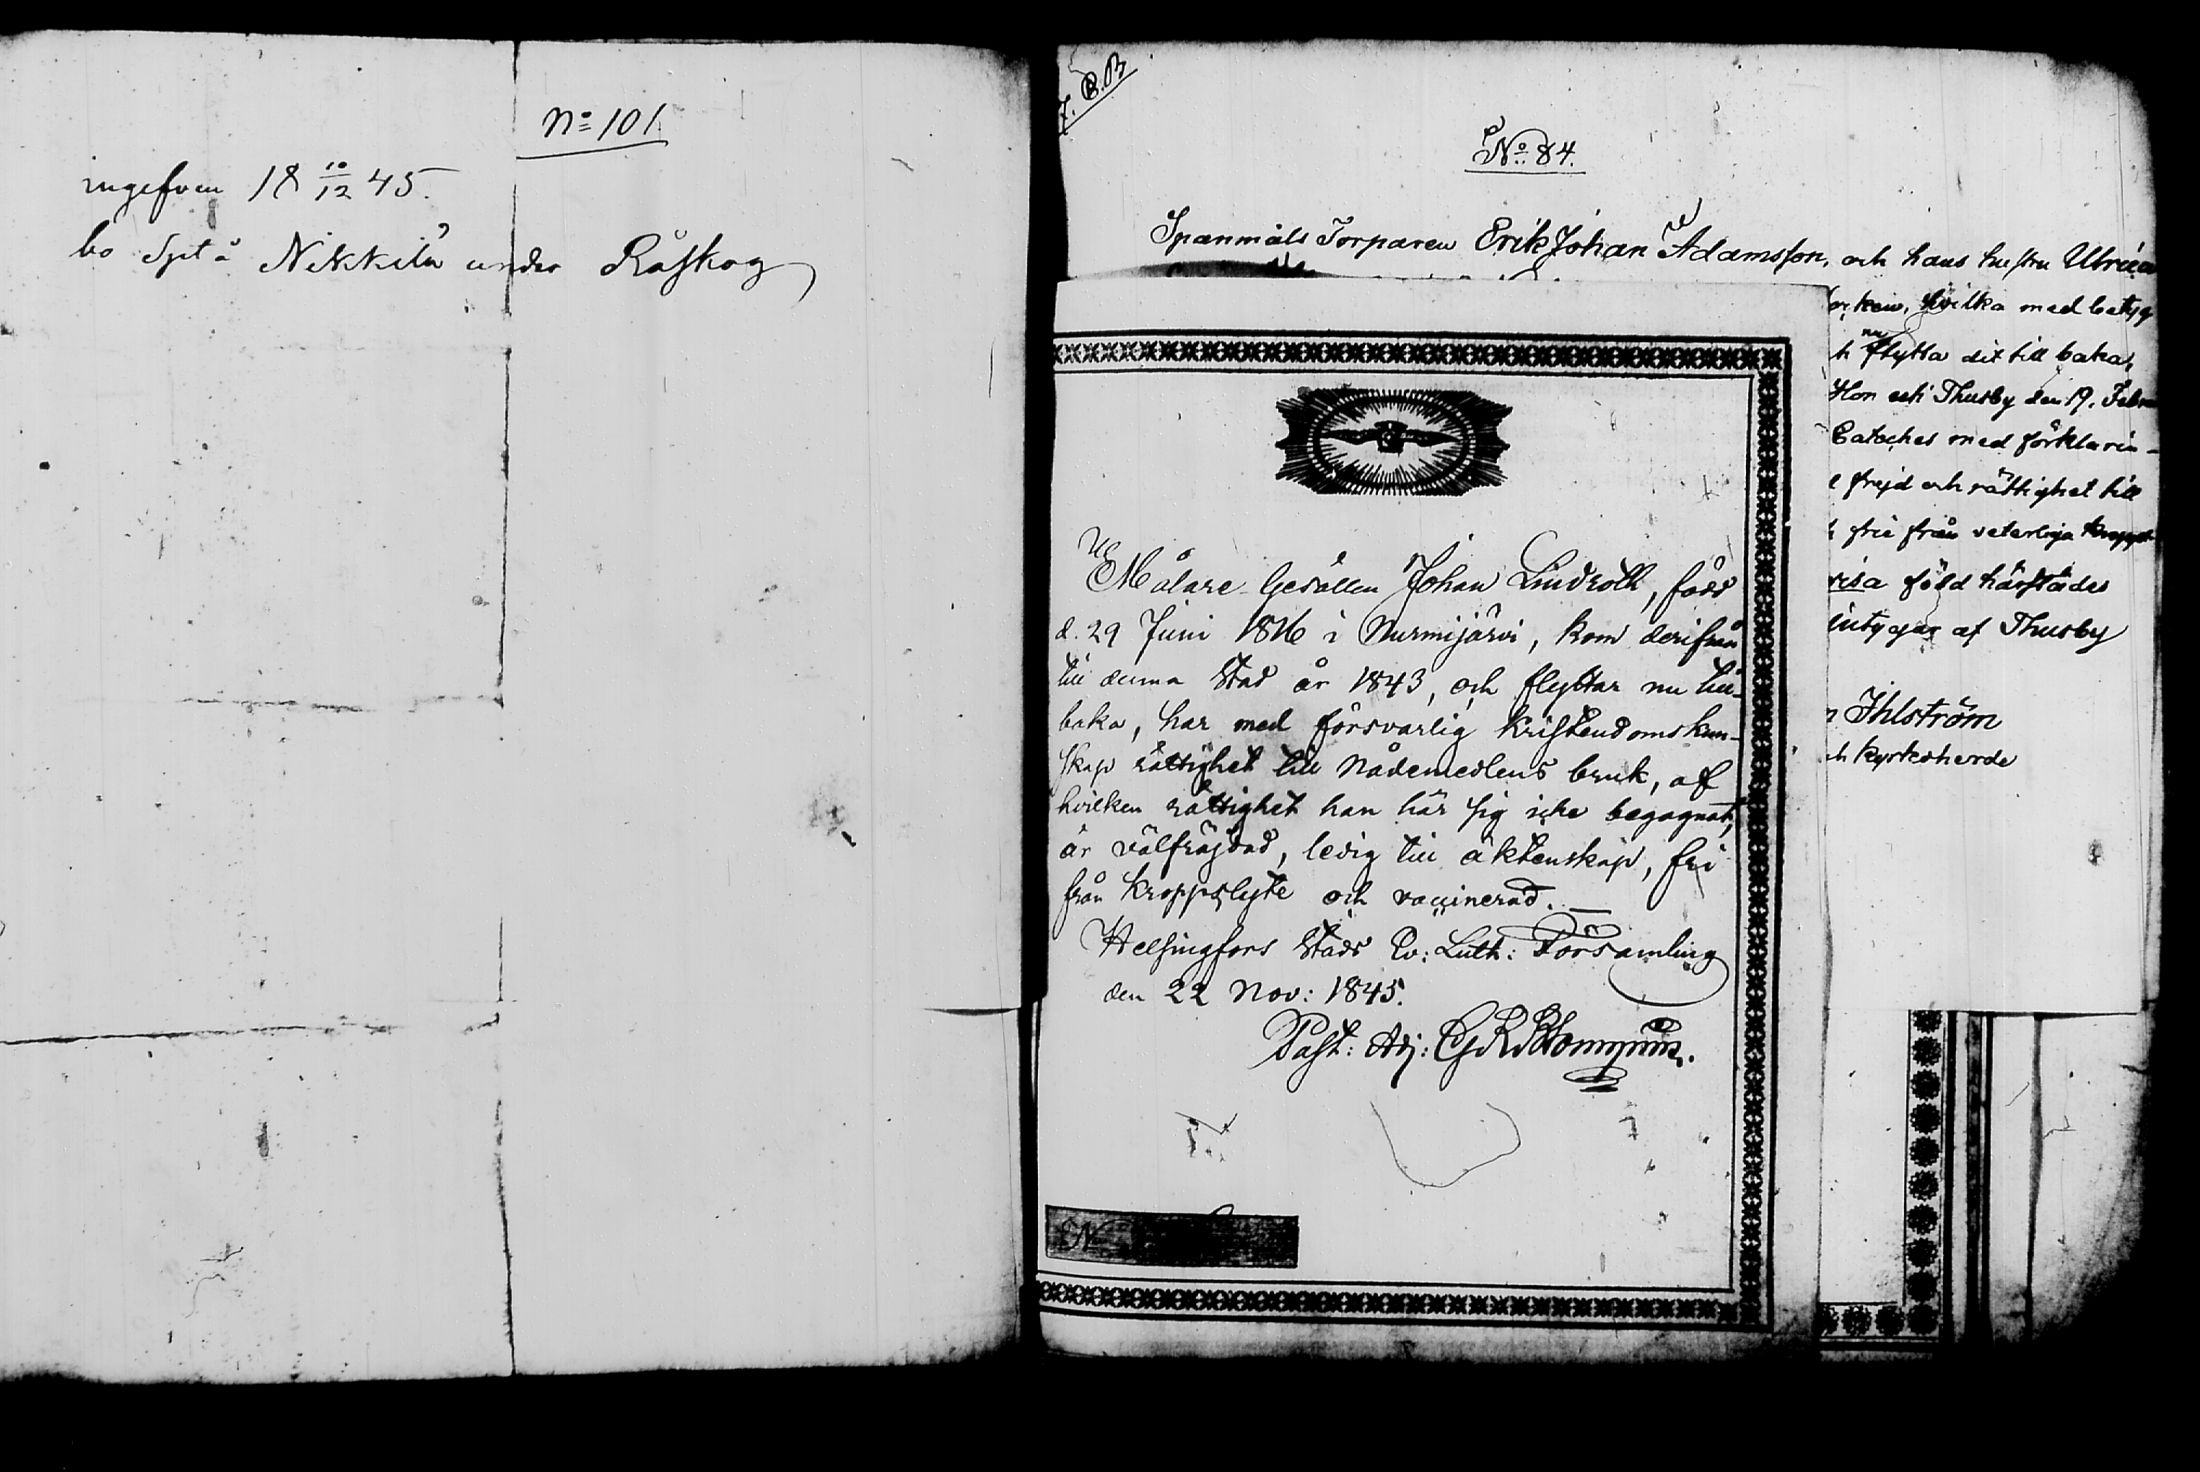 No 101
ingifven 18 10/12 45.
bo Spt å Nikkilä under Råskog
No 84.
Spanmåls Torparen Erik Johan Adamsson, och hans hustru Ulrica
hvilka med betyg
flytta dit till baka,
Hon uti Thusby den 19. Febru
Cateches med förklarin-
frejd och rättighet till
fria från veterliga kropps
risa född härstädes
intygar af Thusby
Ihlström
ch kyrkoherde
Målare-Gesällen Johan Lindroth, född
d. 29 Juni 1816 i Nurmijärvi, kom derifrån
till denna Stad år 1843, och flyttar nu till-
baka, har med försvarlig kristendomskun-
skap rättighet till Nådemedlens bruk, af
hvilken rättighet han här sig icke begagnat,
är välfräjdad, ledig till äktenskap, fri
från kroppslyte och vaccinerad.
Helsingfors Stads Ev: Luth: Församling
den 22 Nov: 1845.
Past: Adj: